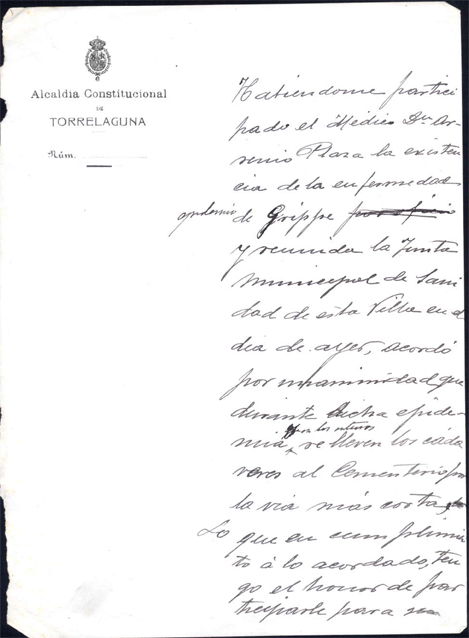 Alcaldía Constitucional
DE
TORRELAGUNA
Núm.
Habiendome partici
pado el Médico Dn. Ar
senio Plaza la existen
cia de la enfermedad
epidemia de Grippe
y reunida la Junta
Municipal de Sani
dad de esta Villa en el
dia de ayer, acordó
por unanimidad que
durante dicha epide-
mia, se lleven los cada
veres al Cementerio por
la via mas corta,
Lo que en cumplimien
to á lo acordado, ten
go el honor de par
ticiparle para su